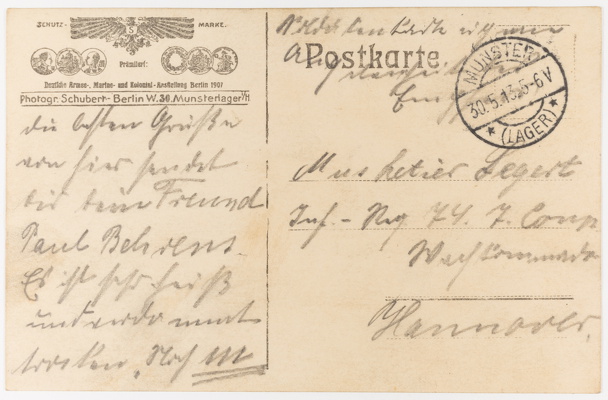 SCHUTZ- MARKE.
S
Prämiiert:
Deutsche Armee-, Marine- und Kolonial-Ausstellung Berlin 1907
Photogr. Schubert- Berlin W.30. Munsterlager i/H
Postkarte
MUNSTER
30.5.13.5-6V
* (LAGER) *
die besten Grüße
von hier sendet
dir dein Freund
Paul Behrens.
Es ist sehr heiß
und
trocken. Noch III
Musketier Segert
Inf.-Reg 74. 7. Comp
Wachkommando
Hannover.